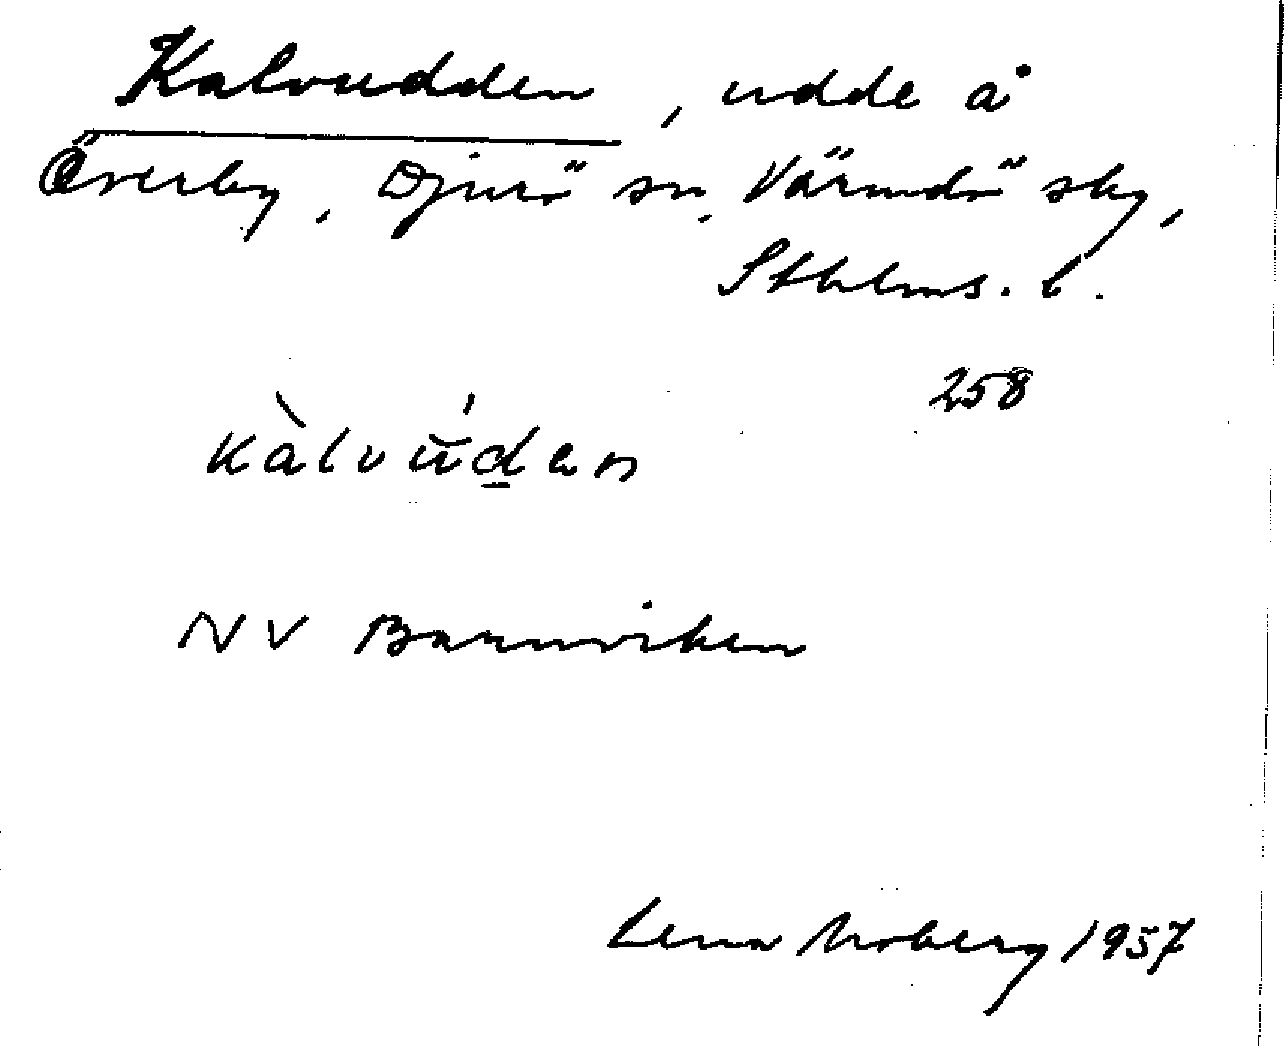 Kalvudden, udde å
Överby, Djurö sn, Värmdö skg,
Sthlms. l.
258
kàlvúden
NV Bannviken
Lena Moberg 1957